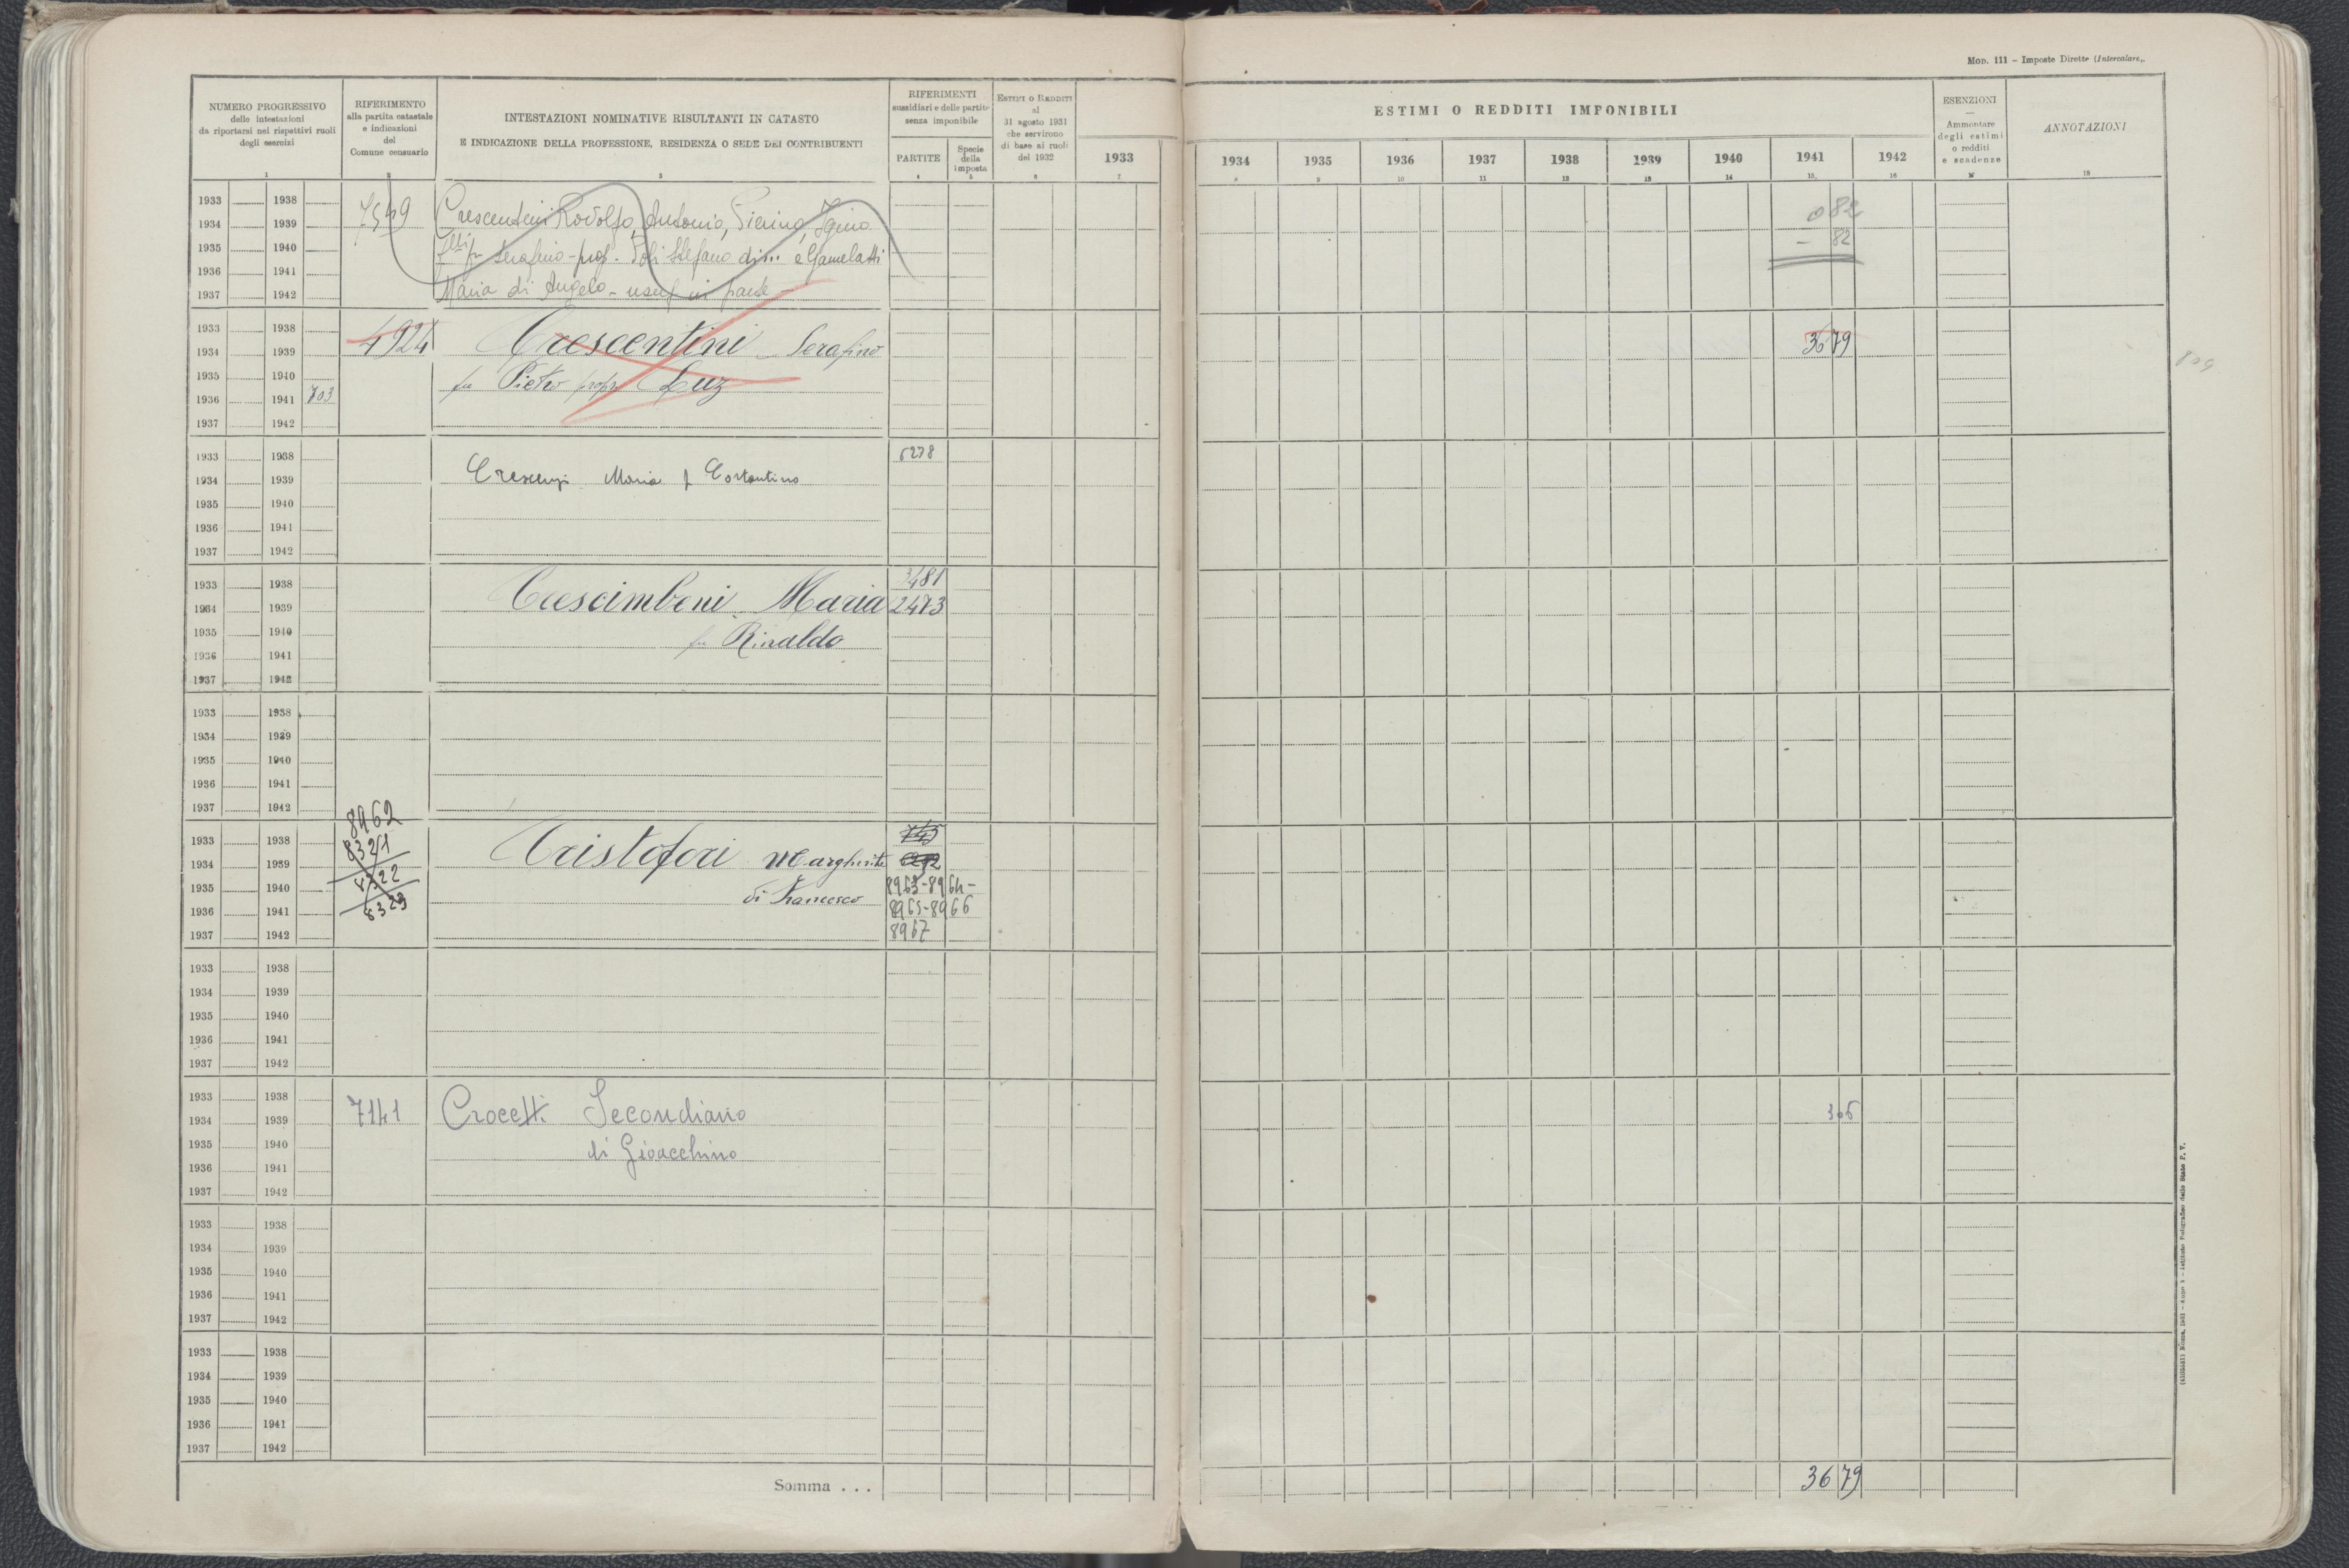 Mod. 111 – Imposte Dirette (Intercalare).
NUMERO PROGRESSIVO
delle intestazioni
da riportarsi nei rispettivi ruoli
degli esercizi
1
RIFERIMENTO
alla partita catastale
e indicazioni
del
Comune censuario
2
INTESTAZIONI NOMINATIVE RISULTANTI IN CATASTO
E INDICAZIONE DELLA PROFESSIONE, RESIDENZA O SEDE DEI CONTRIBUENTI
3
RIFERIMENTI
sussidiari e delle partite
senza imponibile
PARTITE
4
Specie
della
imposta
5
ESTIMI O REDDITI
al
31 agosto 1931
che servirono
di base ai ruoli
del 1932
6
ESTIMI O REDDITI IMPONIBILI
1933 1934 1935 1936 1937 1938 1939 1940 1941 1942
7 8 9 10 11 12 13 14 15 16
ESENZIONI
—
Ammontare
degli estimi
o redditi
e scadenze
ANNOTAZIONI
18
1933 1938 7549 Crescentini Rodolfo, Antonio, Pierino, Igino 082
1934 1939
1935 1940 f.lli fu Serafino - prop. Poli Stefano di... e Gamelatti – 82
1936 1941
1937 1942 Maria di Angelo - usuf in parte
1933 1938 4924 Crescentini Serafino 3679
1934 1939
1935 1940 fu Pietro propr Luz
1936 1941 703
1937 1942
1933 1938 6278
1934 1939 Crescenzi Maria f Costantino
1935 1940
1936 1941
1937 1942
1933 1938 3481
1934 1939 Crescimbeni Maria 2473
1935 1940 fu Rinaldo
1936 1941
1937 1942
1933 1938
1934 1939
1935 1940
1936 1941
1937 1942
8962
1933 1938 8321 745
1934 1939 Cristofori Margherita
1935 1940 8322 8963-8964-
1936 1941 8323 di Francesco 8965-8966
1937 1942 8967
1933 1938
1934 1939
1935 1940
1936 1941
1937 1942
1933 1938 7141 Crocetti Secondiano 306
1934 1939
1935 1940 di Gioacchino
1936 1941
1937 1942
1933 1938
1934 1939
1935 1940
1936 1941
1937 1942
1933 1938
1934 1939
1935 1940
1936 1941
1937 1942
Somma . . . 3679